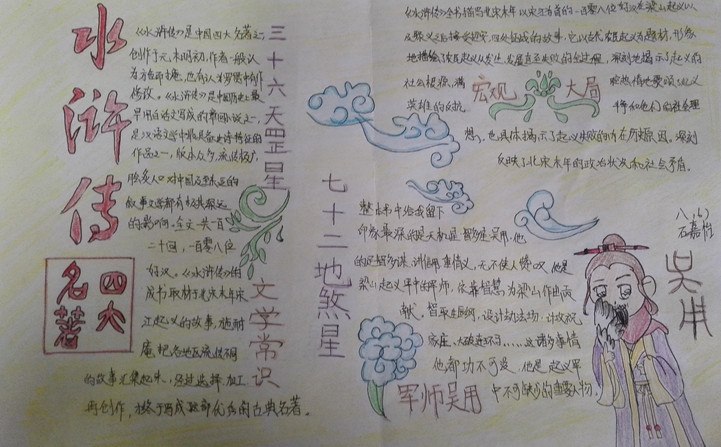 水浒传
四大名著
《水浒传》是中国四大名著之一,
创作于元末明初,作者一般认
为为施耐庵,也有认为罗贯中作
修改。《水浒传》是中国历史上最
早用白话文写成的章回小说之一,
是汉语文学中最具备史诗特征的
作品之一,版本众多,流传极广,
脍炙人口,对中国及东亚的
叙事文学都有极其深远
的影响。全文一共一百
二十回,一百零八位
好汉。《水浒传》的
成书取材于北宋末年宋
江起义的故事,施耐
庵把各地流传不同
的故事汇集起来,经过选择、加工、
再创作,
古典名著。
三十六天罡星
文学常识
七十二地煞星
《水浒传》全书描写北宋末年以宋江为首的一百零八位好汉在梁山起义以
及聚义之后接受招安、四处征战的故事,它以农民起义为题材,形象
地描绘了农民起义从发生、发展直至失败的全过程,深刻地揭示了起义的
社会根源,满
腔热情地歌颂了起义
英雄的反抗
争和他们的社会理
宏观大局
想,也具体揭示了起义失败的内在历史原因。深刻
反映了北宋末年的政治状况和社会矛盾。
整本书中给我留下
印象最深的是天机星智多星吴用,他
的足智多谋,讲信用重情义,无不使人赞叹,他是
梁山起义军中的军师,依靠智慧为梁山作出贡
献。智取生辰纲,设计劫法场,计攻祝
家庄,大破连环马……这诸多事情
他都功不可没,他是起义军
中不可缺少的重要人物。
军师吴用
八、(6)
石嘉怡
吴用